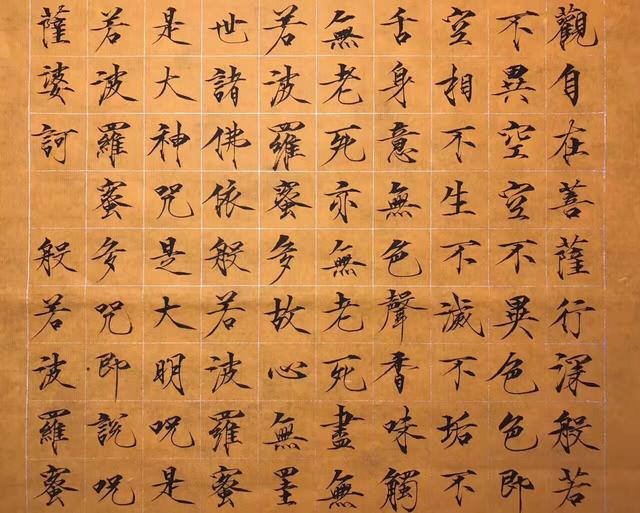 觀自在菩薩行深般若
不異空空不異色色即
空相不生不滅不垢不
舌身意無色聲香味觸
無老死亦無老死盡無
若波羅蜜多故心無罣
世諸佛依般若波羅蜜
是大神咒是大明咒是
若波羅蜜多咒即說咒
薩婆訶 般若波羅蜜